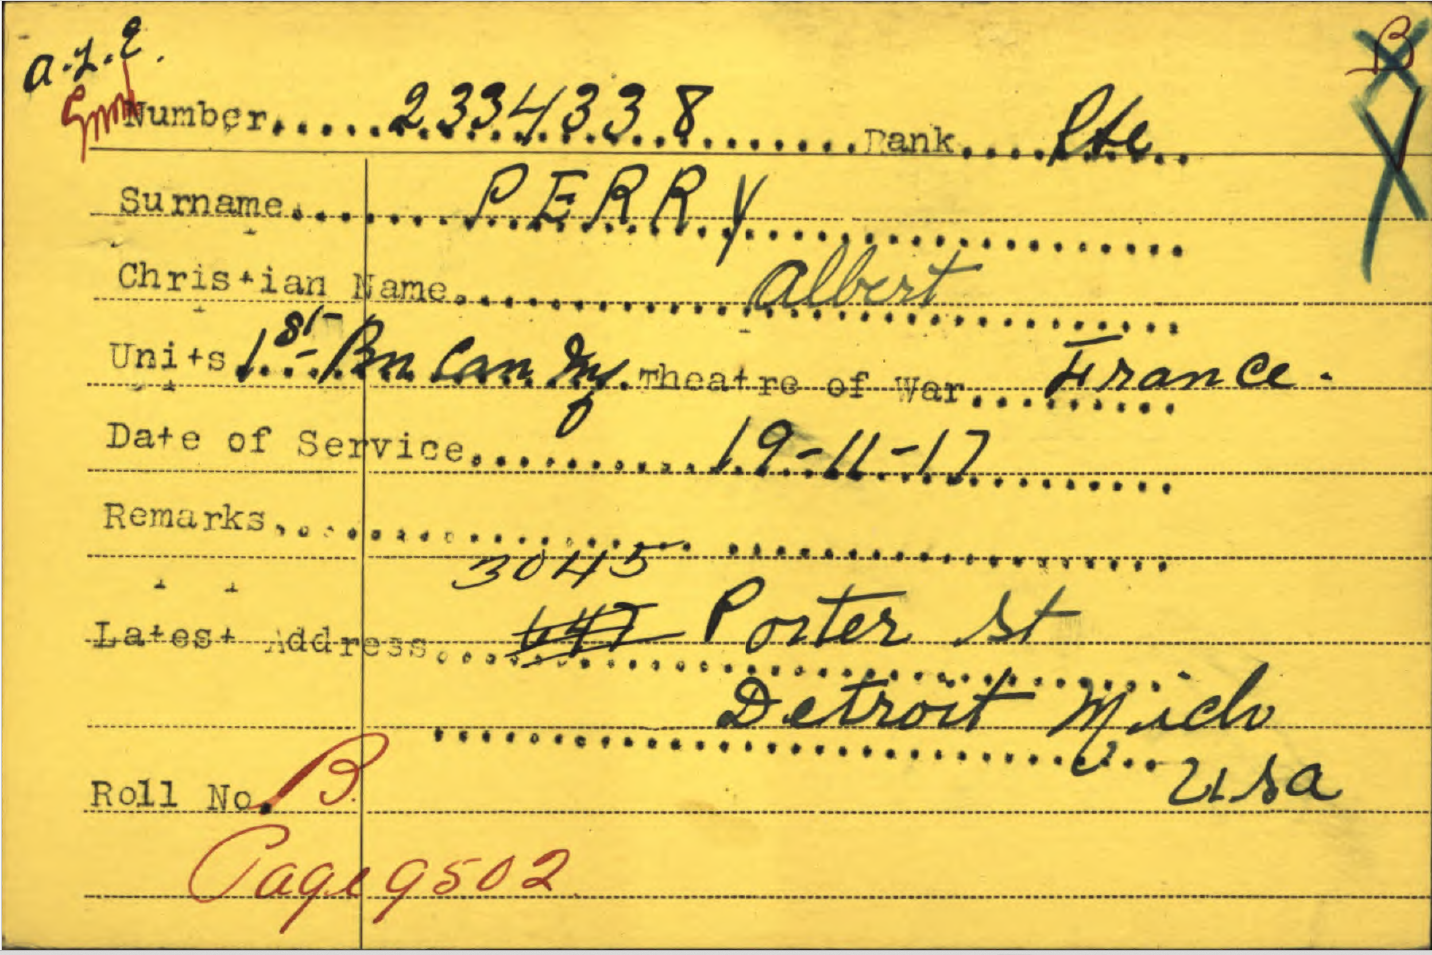 a.L.E.
Number 2334338 Rank Pte
B
Surname PERRY
Christian Name Albert
Units 1st Bn Can Inf. Theatre of War France.
Date of Service 19-11-17
Remarks
3045
Latest Address 647 Porter St
Detroit Mich
USA
Roll No. B
Page 9502